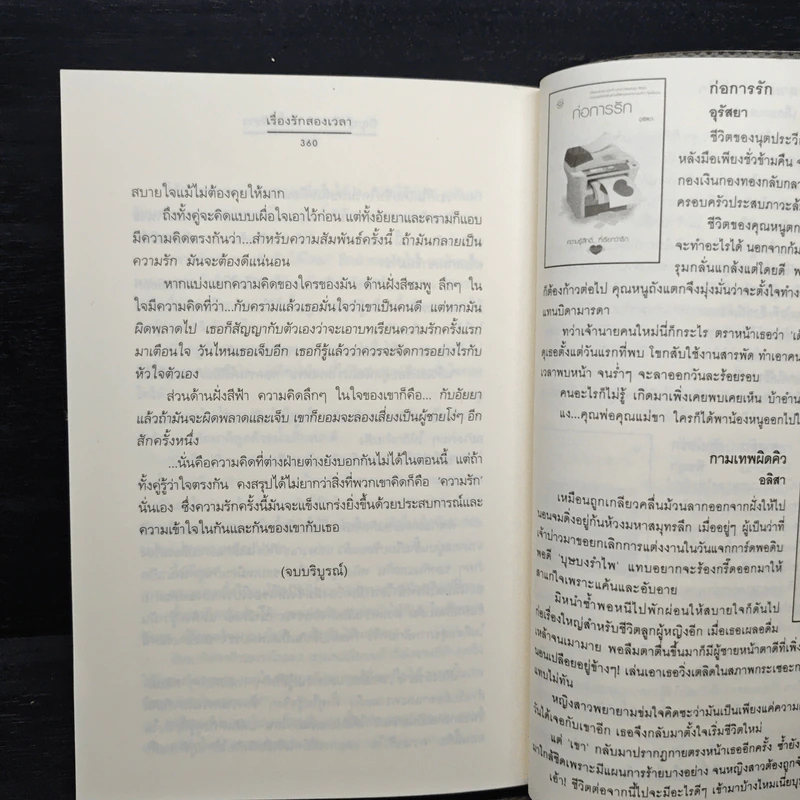 เรื่องรักสองเวลา
360
สบายใจแม้ไม่ต้องคุยให้มาก
ถึงทั้งคู่จะคิดแบบเผื่อใจเอาไว้ก่อน แต่ทั้งอัยยาและครามก็แอบ
มีความคิดตรงกันว่า...สำหรับความสัมพันธ์ครั้งนี้ ถ้ามันกลายเป็น
ความรัก มันจะต้องดีแน่นอน
หากแบ่งแยกความคิดของใครของมัน ด้านฝั่งสีชมพู ลึกๆ ใน
ใจมีความคิดที่ว่า...กับครามแล้วเธอมั่นใจว่าเขาเป็นคนดี แต่หากมัน
ผิดพลาดไป เธอก็สัญญากับตัวเองว่าจะเอาบทเรียนความรักครั้งแรก
มาเตือนใจ วันไหนเธอเจ็บอีก เธอก็รู้แล้วว่าควรจะจัดการอย่างไรกับ
หัวใจตัวเอง
ส่วนด้านฝั่งสีฟ้า ความคิดลึกๆ ในใจของเขาก็คือ... กับอัยยา
แล้วถ้ามันจะผิดพลาดและเจ็บ เขาก็ยอมจะลองเสี่ยงเป็นผู้ชายโง่ๆ อีก
สักครั้งหนึ่ง
...นั่นคือความคิดที่ต่างฝ่ายต่างยังบอกกันไม่ได้ในตอนนี้ แต่ถ้า
ทั้งคู่รู้ว่าใจตรงกัน คงสรุปได้ไม่ยากว่าสิ่งที่พวกเขาคิดก็คือ ‘ความรัก’
นั่นเอง ซึ่งความรักครั้งนี้มันจะแข็งแกร่งยิ่งขึ้นด้วยประสบการณ์และ
ความเข้าใจในกันและกันของเขากับเธอ
(จบบริบูรณ์)
ก่อการรัก
อุรัสยา
ก่อการรัก
อุรัสยา
ความรู้สึกดี... ที่เรียกว่ารัก
ชีวิตของนุตประวี
หลังมือเพียงชั่วข้ามคืน
กองเงินกองทองกลับกลา
ครอบครัวประสบภาวะล้
ชีวิตของคุณหนูตก
จะทำอะไรได้ นอกจากก้ม
รุมกลั่นแกล้งแต่โดยดี
ก็ต้องก้าวต่อไป คุณหนูถังแตกจึงมุ่งมั่นว่าจะตั้งใจทำง
แทนบิดามารดา
ทว่าเจ้านายคนใหม่นี่ก็กระไร ตราหน้าเธอว่า
ดุเธอตั้งแต่วันแรกที่พบ โขกสับใช้งานสารพัด ทำเอาคน
เวลาพบหน้า จนร่ำๆ จะลาออกวันละร้อยรอบ
คนอะไรก็ไม่รู้ เกิดมาเพิ่งเคยพบเคยเห็น บ้าอำน
แง...คุณพ่อคุณแม่ขา ใครก็ได้พาน้องหนูออกไปใ
กามเทพผิดคิว
อลิสา
เหมือนถูกเกลียวคลื่นม้วนลากออกจากฝั่งให้ไป
นอนจมดิ่งอยู่ก้นห้วงมหาสมุทรลึก เมื่ออยู่ๆ ผู้เป็นว่าที่
เจ้าบ่าวมาขอยกเลิกการแต่งงานในวันแจกการ์ดพอดิบ
พอดี ‘บุษบงรำไพ’ แทบอยากจะร้องกรี๊ดออกมาให้
สาแก่ใจเพราะแค้นและอับอาย
มิหนำซ้ำพอหนีไปพักผ่อนให้สบายใจก็ดันไป
ก่อเรื่องใหญ่สำหรับชีวิตลูกผู้หญิงอีก เมื่อเธอเผลอดื่ม
เหล้าจนเมามาย พอลืมตาตื่นขึ้นมาก็มีผู้ชายหน้าตาดีที่เพิ่ง
นอนเปลือยอยู่ข้างๆ! เล่นเอาเธอวิ่งเตลิดในสภาพกระเซอะก
แทบไม่ทัน
หญิงสาวพยายามข่มใจคิดซะว่ามันเป็นเพียงแค่ความ
วันได้เจอกับเขาอีก เธอจึงกลับมาตั้งใจเริ่มชีวิตใหม่
แต่ ‘เขา’ กลับมาปรากฏกายตรงหน้าเธออีกครั้ง ซ้ำยัง
มาใกล้ชิดเพราะมีแผนการร้ายบางอย่าง จนหญิงสาวต้องถูกจั
เอ้า! ชีวิตต่อจากนี้ไปจะมีอะไรดีๆ เข้ามาบ้างไหมเนี่ยบุษ